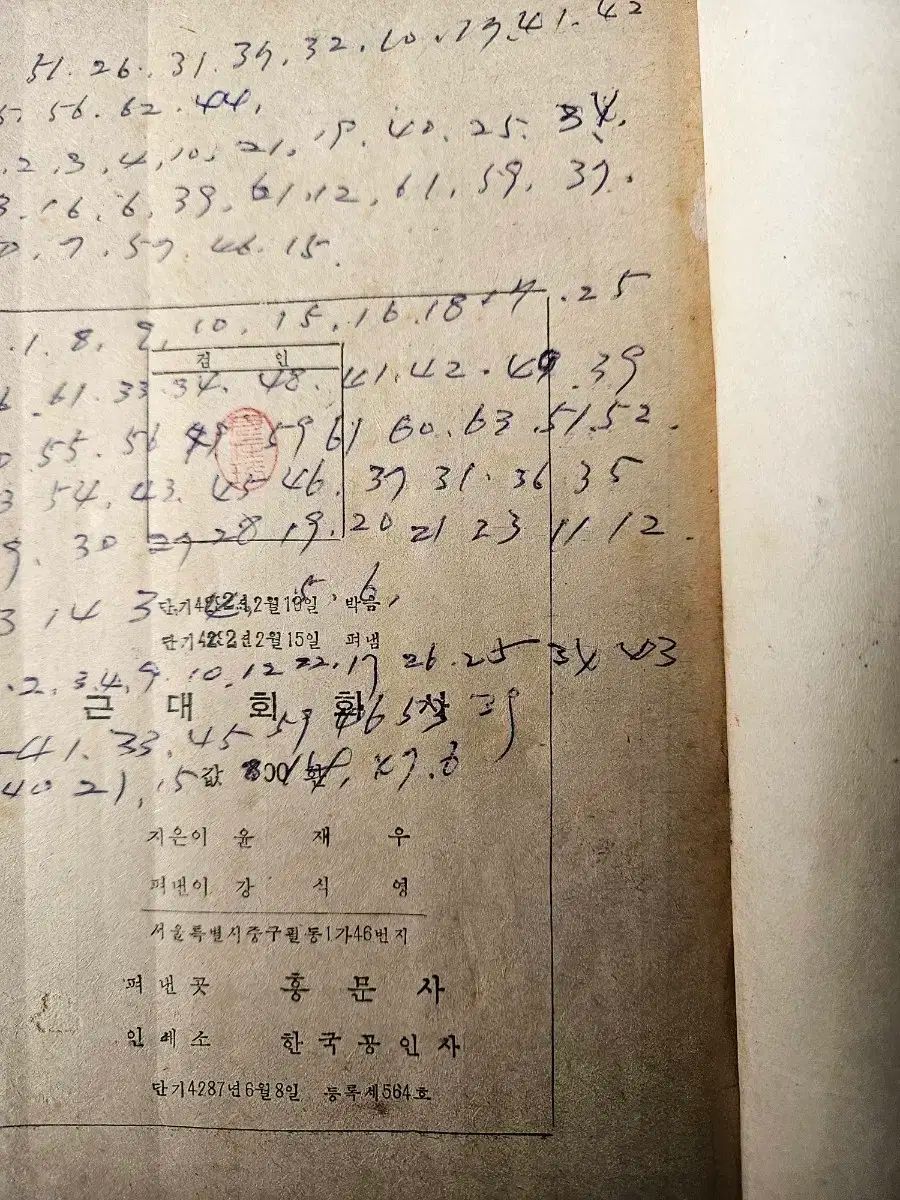 51. 26. 31. 37. 32. 10. 17. 41. 42
56. 62. 44.
2. 3. 4. 10. 21. 19. 40. 25. 34.
16. 6. 39. 61. 12. 61. 59. 37.
7. 57. 46. 15.
1. 8. 9. 10. 15. 16. 18. 17. 25
검 인
61. 33. 34. 48. 41. 42. 49. 39
55. 56 49 59 61 60. 63. 51. 52.
54. 43. 45 46. 37 31. 36 35
30 29 28 19. 20 21 23 11. 12.
14 3 5. 6,
2월 10일 박음
2월 15일 펴냄
2. 3. 4. 9. 10. 12 22. 17 26. 25 34 43
근 대 회 화 사
41. 33. 45 59 46 53 39
값
40 21. 15 47. 6
지은이 윤 재 우
펴낸이 강 식 영
서울특별시중구필동1가46번지
펴낸곳 홍 문 사
인쇄소 한국공인사
단기4287년6월8일 등록제564호